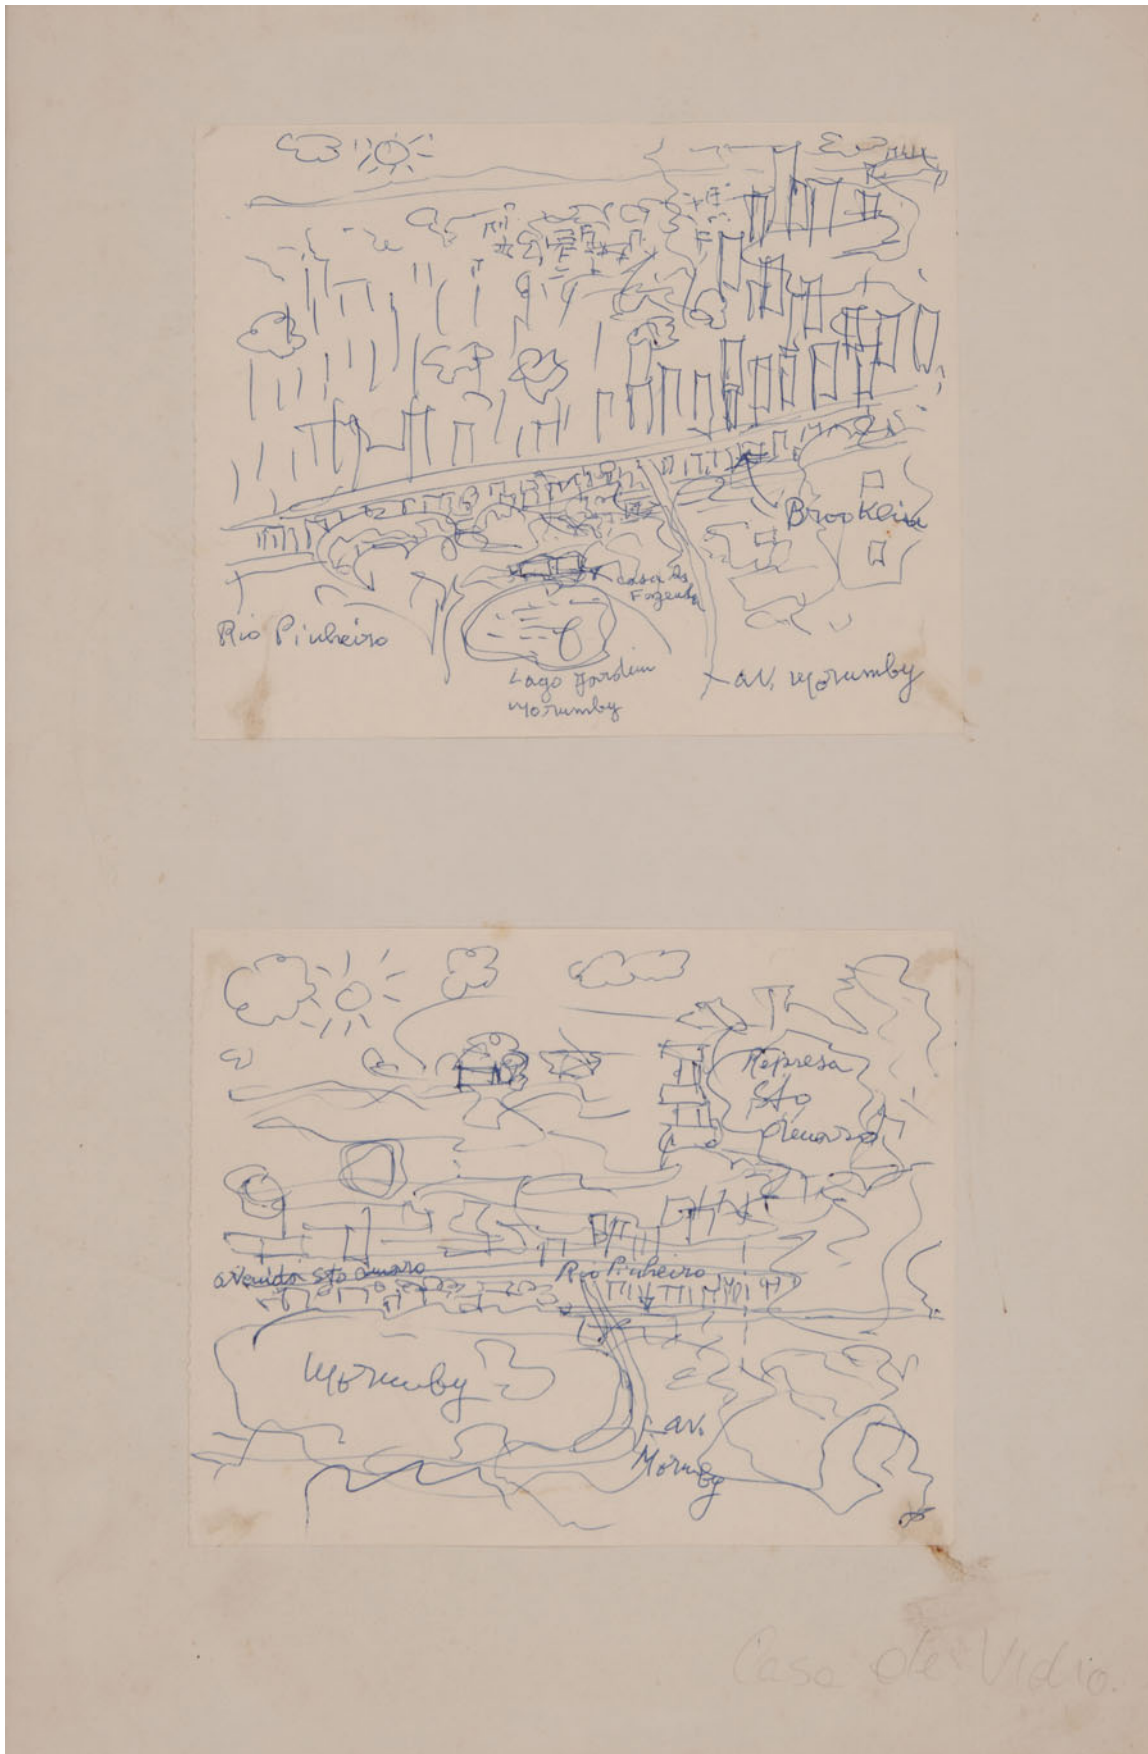 Brooklin
casa da
Fazenda
Rio Pinheiro
Lago Jardim
Morumby
av. Morumby
Represa
Sto
Amaro
avenida Sto amaro
Rio Pinheiro
Morumby
av.
Morumby
Casa de Vidro.